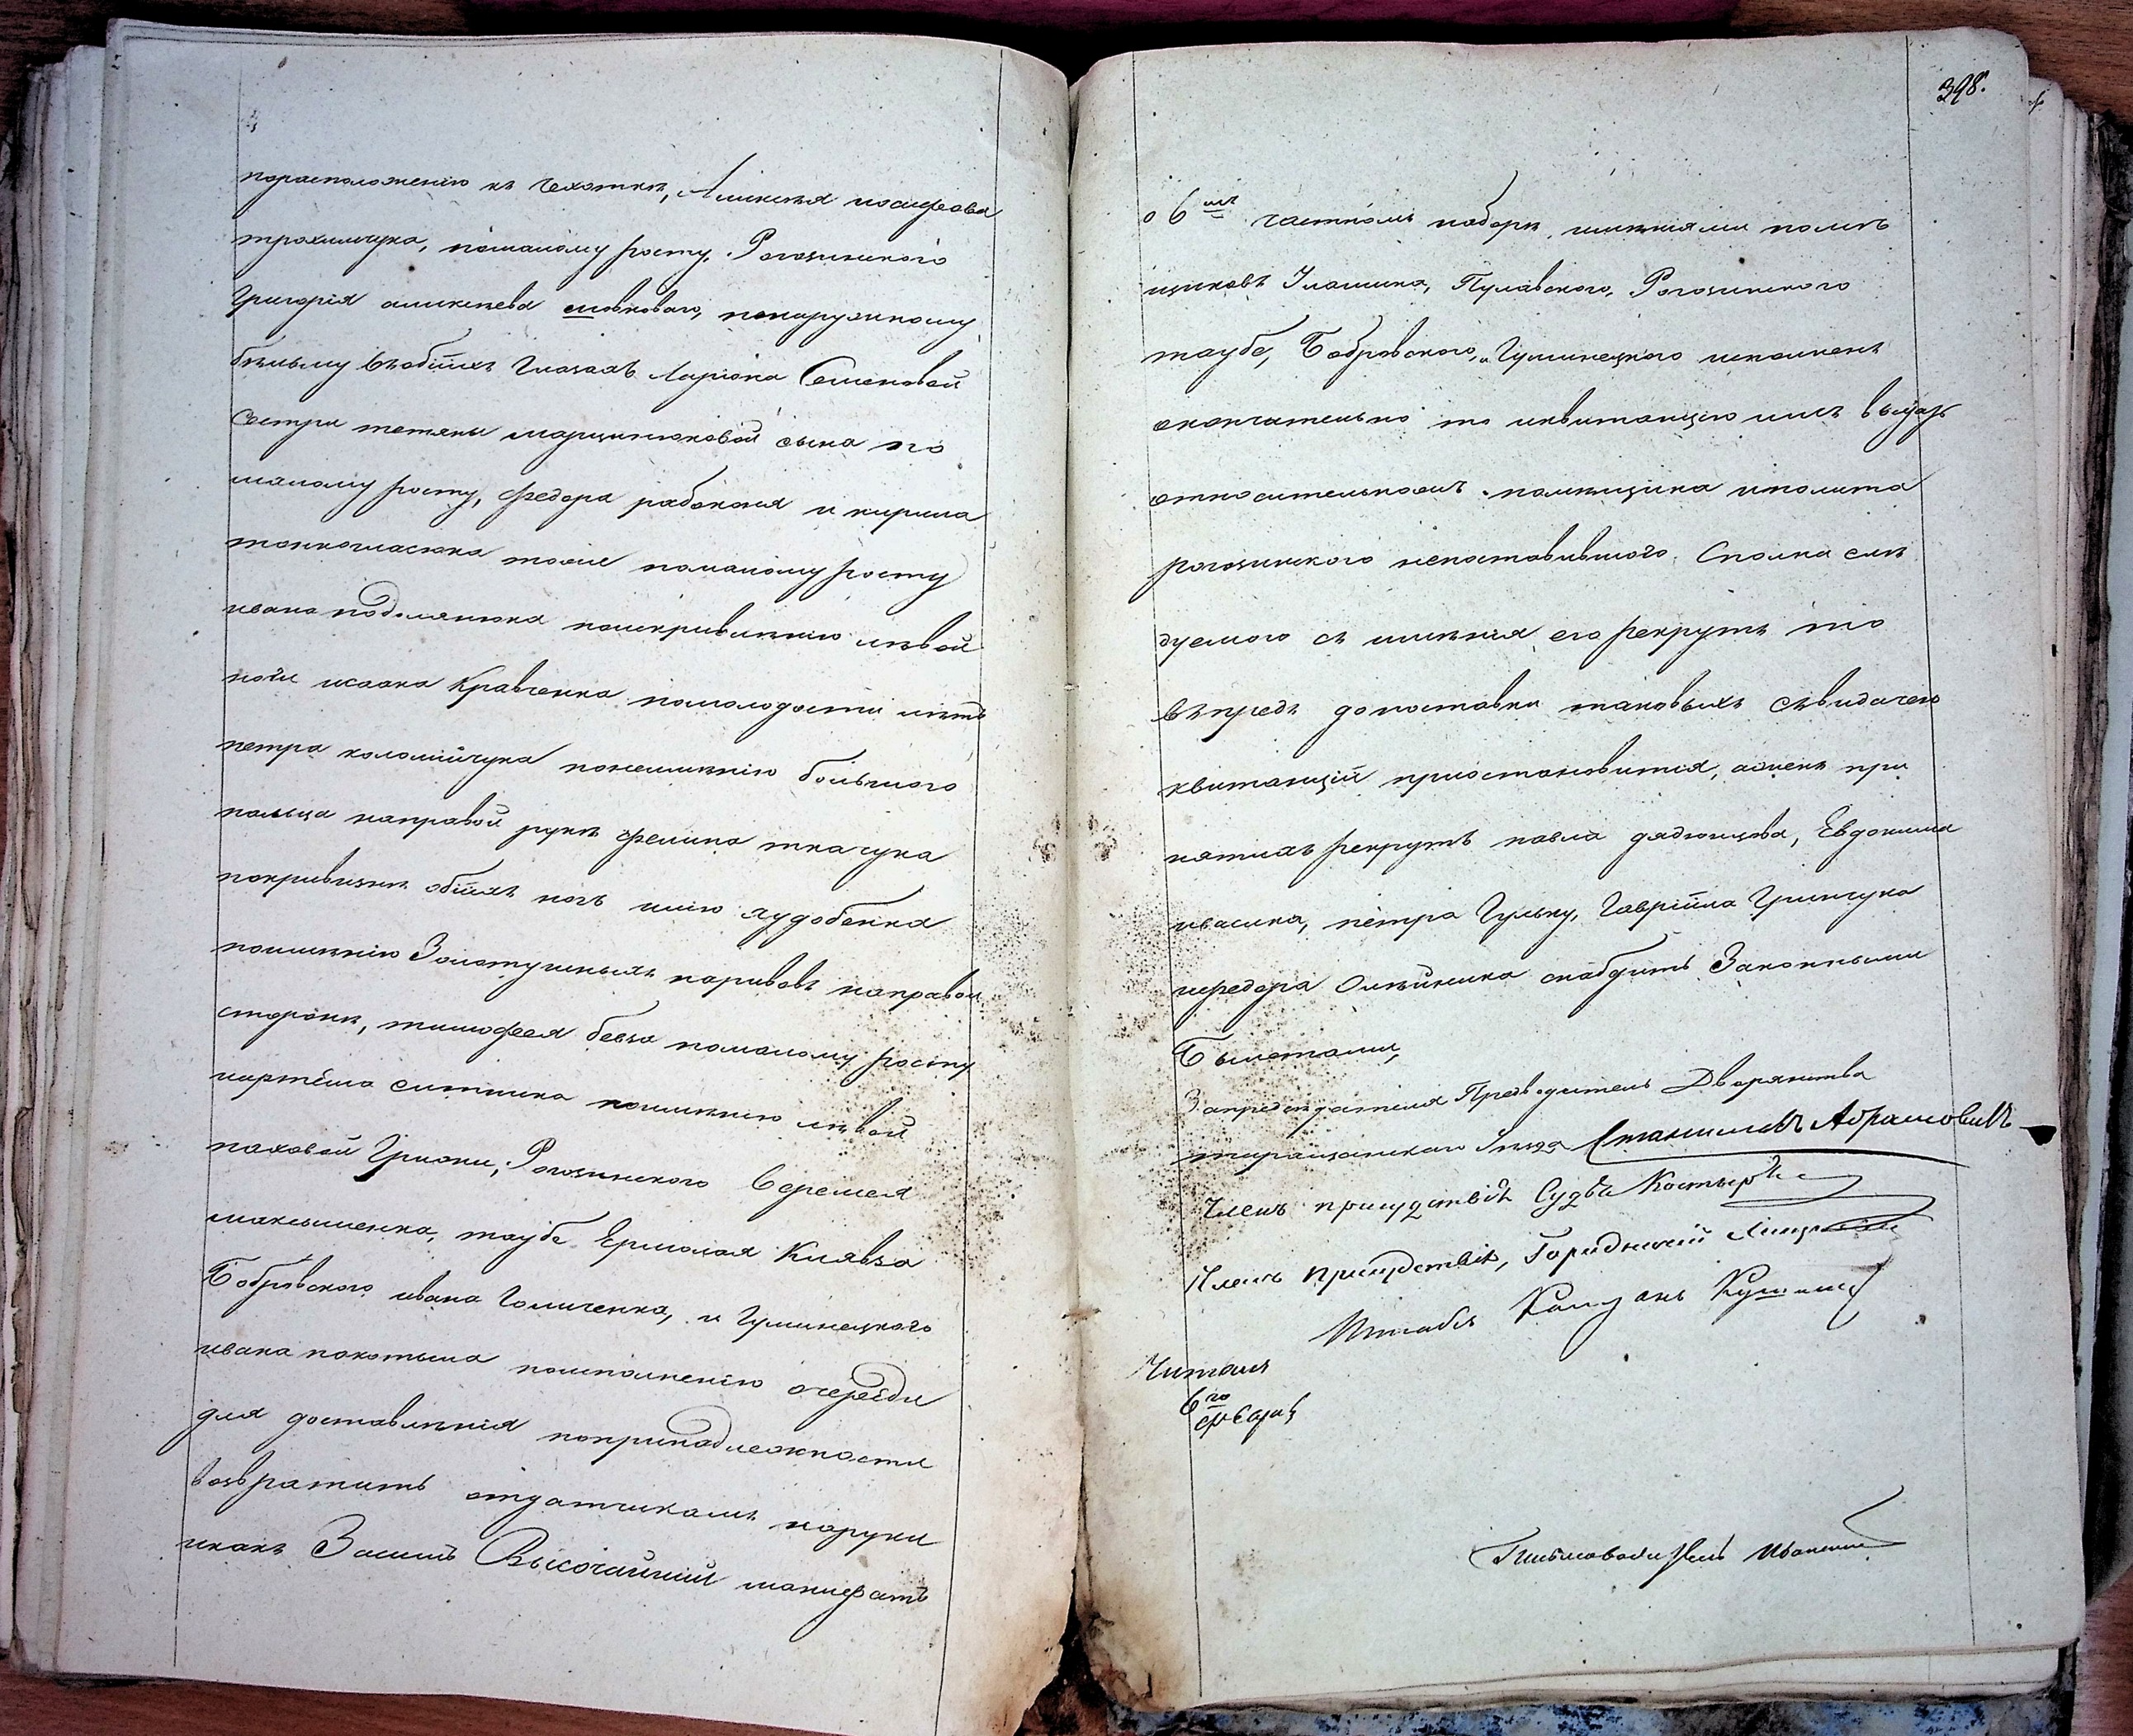 порасположенію къ чахоткѣ, Аликсѣя иосифова
трохимчука, помалому росту, Рогозинского
Григорія аликсѣева словкового, понаружному
бѣльму въобѣихъ Глазахъ Ларіона Семеновой
Сестри тетяны марцинюковой сына по
малому росту, федора рабоконя и кирила
тонкогласюка тоже помалому росту
ивана подолянюка поискривленію лѣвой
ноги исаака Кравченка помолодости лѣтъ
петра коломійчука понеимѣнію большого
пальца направой рукѣ филипа ткачука
покривизнѣ обѣихъ ногъ илію худобенка
поимѣнію Золотушныхъ наривовъ направой
сторонѣ, тимофея бевза помалому росту
иартёма ситника поимѣнію лѣвой
паховой Грижи, Рогозинского Веремея
максименка, таубе Ермолая Клявза
Бобровского ивана Гомиченка, и Гулинецкого
ивана покотила поисполненію очереди
для доставленія попринадлежности
возвратить отдатчикамъ наруки
икакъ Засимъ Высочайший манифестъ
398.
о 6мъ частномъ наборѣ имѣніями помѣ
щиковъ Улашина, Пулавского, Рогозинского
таубе, Бобровского, и Гулинецкого исполненъ
окончательно то иквитанцію имъ выдать
относительножъ помѣщика иполита
рогозинского непоставившого Сполна слѣ
дуемого съ имѣнія его рекрутъ то
въпредь допоставки таковыхъ съвидачею
квитанцій приостановится, аоиенъ при
нятихъ рекрутъ павла дядюшова, Евдокима
ивасика, петра Гульку, Гавріила Гринчука
ифедора Олѣйника снабдить Законными
Билетами,
Запредседателя Предводитель Дворянства
таращанскаго Уѣзда Станиславъ Абрамовичъ
Членъ присудствія Судья
Членъ Присудствія, Городничій
Штабъ
Читалъ
6го
февраля
Письмоводитель